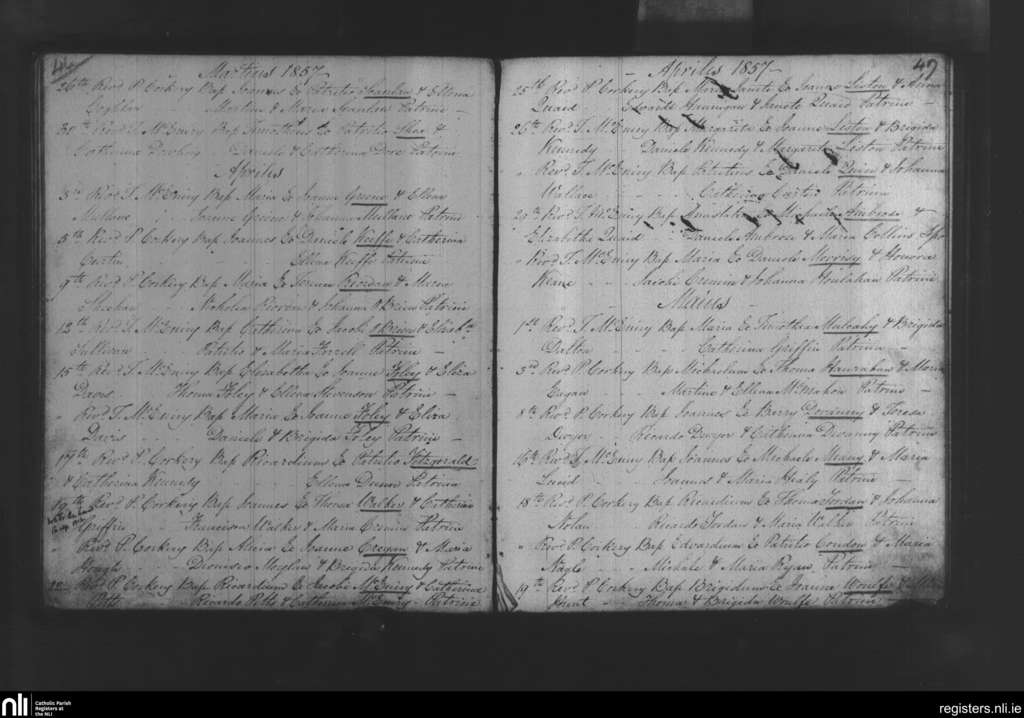 Martius 1857
26th Revd P. Corkery Bap Joannes Ex Patritio Scanlan & Ellena
Coghlan Martin & Maria Scanlan Patrini
Revd T. McEniry Bap Timotheus Ex Patritio Shea &
Catherina Dowling Daniele & Catherina Dore Patrini
Aprilis
3rd Revd T. McEniry Bap Maria Ex Joanne Greene & Ellena
Mullane Greene & Johanna Mullane Patrini
5th Revd P. Corkery Bap Joannes Ex Daniele Keeffe & Catherina
Curtin Ellena Keeffe Patrini
9th Revd P. Corkery Bap Maria Ex Riordan & Maria
Sheehan Nicholas Riordan & Johanna OBrien Patrini
12th Revd T. McEniry Bap Catherina Ex Jacobi OBrien & Elisbth
Sullivan Patritio & Maria Farrell Patrini
15th Revd T. McEniry Bap Elizabetha Ex Joanne Foley & Eliza
Davis Thoma Foley & Ellena Stevenson Patrini
" Revd T. McEniry Bap Maria Ex Joanne Foley & Eliza
Davis Daniele & Brigida Foley Patrini
17th Revd P. Corkery Bap Ricardium Ex Patritio Fitzgerald
& Catherina Kennedy Ellena Dunn Patrina
19th Revd P. Corkery Bap Joannes Ex Thoma Walker & Catherina
Griffin Francison Walker & Maria Cronin Patrini
" Revd P. Corkery Bap Alicia Ex Joanne Cregan & Maria
Hough Dionisio Magher & Brigida Kennedy Patrini
22 Revd P. Corkery Bap Ricardium Ex Jacobi McEniry & Catherina
Pitts Ricardo Pitts & Catherina McEniry Patrini
49
Aprilis 1857
25th Revd P. Corkery Bap Maria Ex Joanne Liston & Anna
Quaid Edvardo Hannigan & Quaid Patrini
26th Revd T. McEniry Bap Margarita Ex Joanne Liston & Brigida
Kennedy Daniele Kennedy & Margarita Liston Patrini
" Revd T. McEniry Bap Patritius Ex Daniele Quin & Johanna
Wallace Catherina Curtin Patrina
29th Revd T. McEniry Bap Ex Ambrose &
Elizabetha Quaid Daniele Ambrose & Maria Collins
" Revd T. McEniry Bap Maria Ex Daniele Morrisy & Honora
Keane Jacobi Cremin & Johanna Houlahan Patrini
Maius
1st Revd T. McEniry Bap Maria Ex Timothea Mulcahy & Brigida
Dalton Catherina Griffin Patrina
3rd Revd P. Corkery Bap Michaelum Ex Thoma Hanrahan & Maria
Eugan Martino & Ellena McMahon Patrini
8th Revd P. Corkery Bap Joannes Ex Barry & Teresa
Dwyer Ricardo Dwyer & Catherina Patrini
15th Revd T. McEniry Bap Joannes Ex Michaele Meany & Maria
Lucid Joannes & Maria Healy Patrini
18th Revd P. Corkery Bap Ricardium Ex Thoma Jordan & Johanna
Nolan Ricardo Jordan & Maria Walker Patrini
" Revd P. Corkery Bap Edvardum Ex Patritio Condon & Maria
Nagle Michaele & Maria Ryan Patrini
19th Revd P. Corkery Bap Brigidum Ex Joanne Woulfe &
Hunt Thoma & Brigida Woulfe Patrini
nli
Catholic Parish
Registers at
the NLI
registers.nli.ie